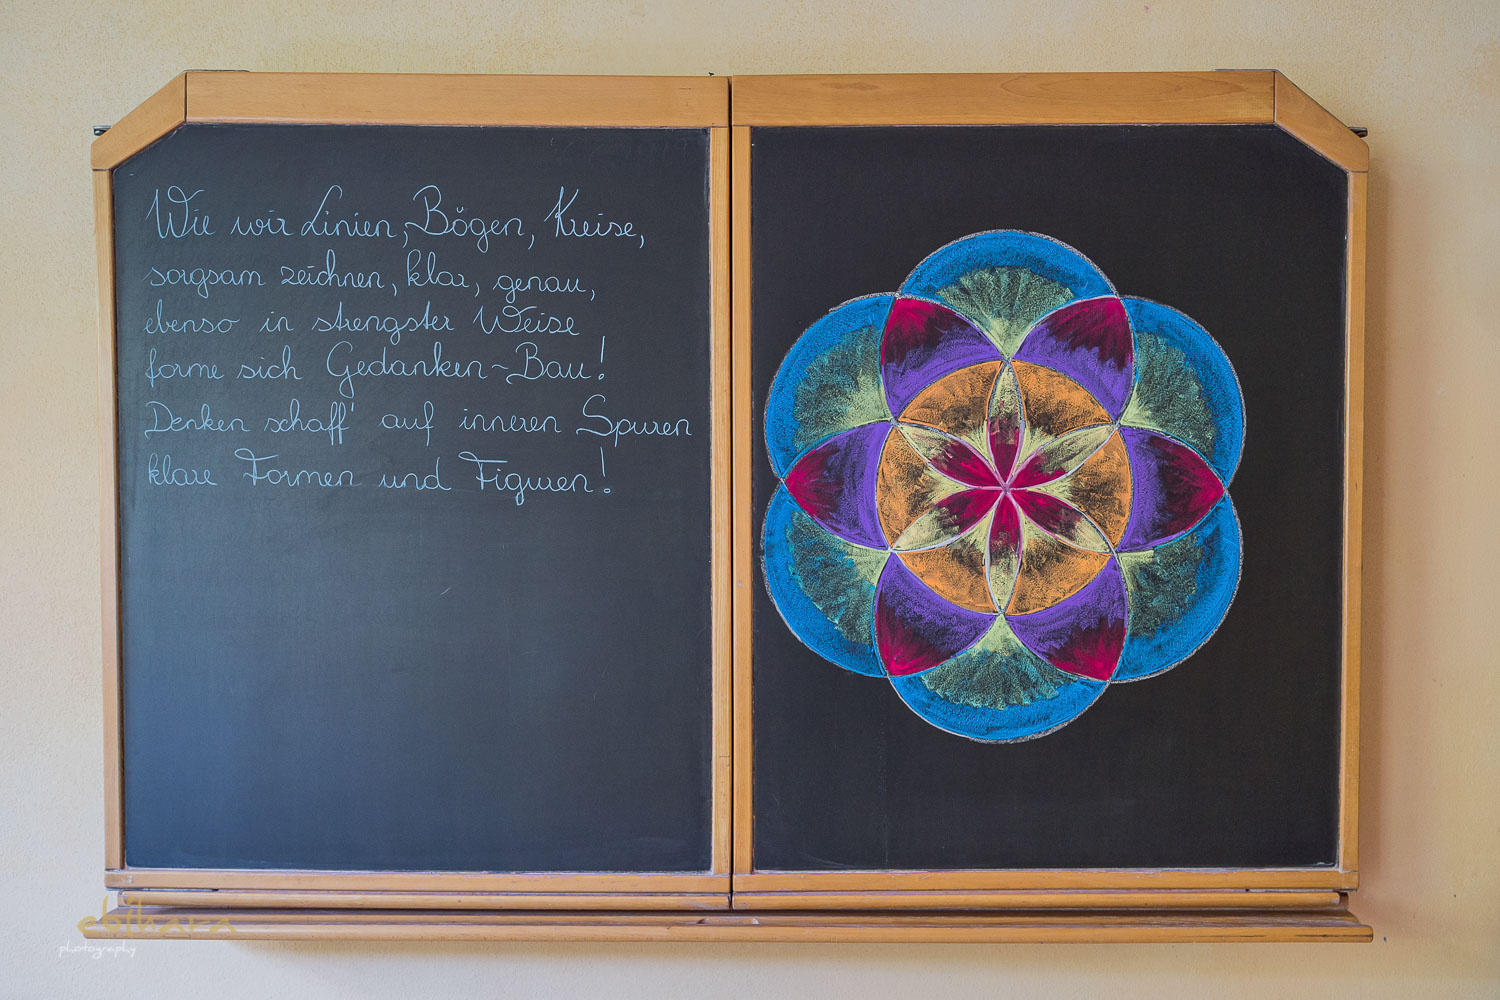 Wie wir Linien, Bögen, Kreise,
sorgsam zeichnen, klar, genau,
ebenso in strengster Weise
forme sich Gedanken-Bau!
Denken schaff' auf inneren Spuren
klare Formen und Figuren!
ebihara
photography